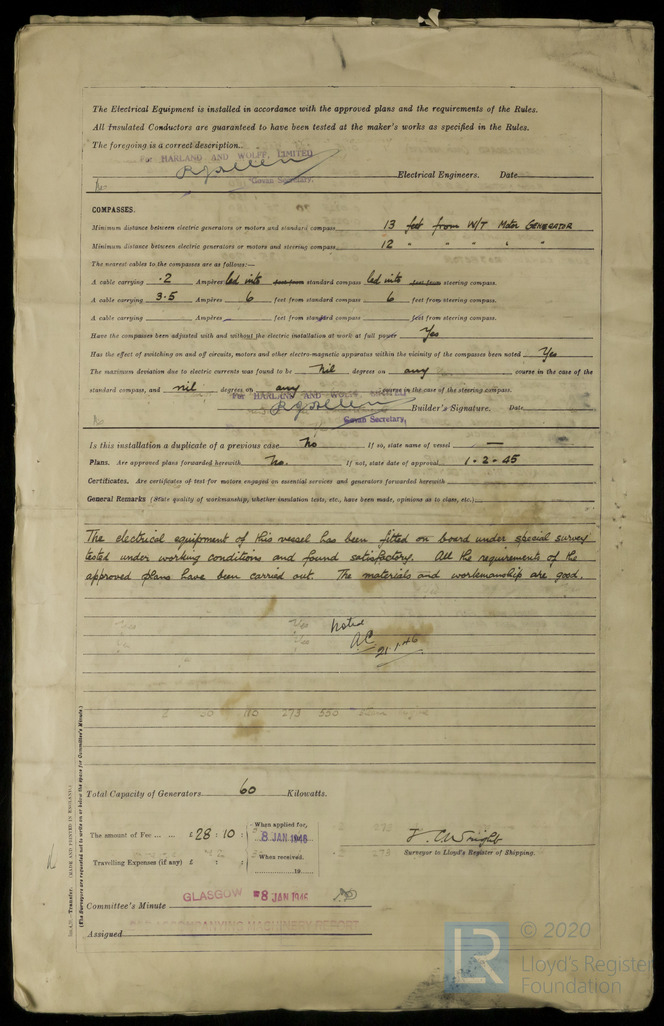 The Electrical Equipment is installed in accordance with the approved plans and the requirements of the Rules.
All Insulated Conductors are guaranteed to have been tested at the maker's works as specified in the Rules.
The foregoing is a correct description.
For HARLAND AND WOLFF, LIMITED
Govan Secretary. Electrical Engineers. Date
COMPASSES.
Minimum distance between electric generators or motors and standard compass 13 feet from W/T Motor GENERATOR
Minimum distance between electric generators or motors and steering compass 12 " " " " "
The nearest cables to the compasses are as follows:—
A cable carrying .2 Ampères led into feet from standard compass led into feet from steering compass.
A cable carrying 3.5 Ampères 6 feet from standard compass 6 feet from steering compass.
A cable carrying Ampères feet from standard compass feet from steering compass.
Have the compasses been adjusted with and without the electric installation at work at full power Yes
Has the effect of switching on and off circuits, motors and other electro-magnetic apparatus within the vicinity of the compasses been noted Yes
The maximum deviation due to electric currents was found to be Nil degrees on any course in the case of the
standard compass, and nil degrees on any course in the case of the steering compass.
For HARLAND AND WOLFF, LIMITED
Builder's Signature. Date
Govan Secretary.
Is this installation a duplicate of a previous case No If so, state name of vessel —
Plans. Are approved plans forwarded herewith No. If not, state date of approval 1-2-45
Certificates. Are certificates of test for motors engaged on essential services and generators forwarded herewith
General Remarks (State quality of workmanship, whether insulation tests, etc., have been made, opinions as to class, etc.)
The electrical equipment of this vessel has been fitted on board under special survey
tested under working conditions and found satisfactory. All the requirements of the
approved plans have been carried out. The materials and workmanship are good.
Noted
AC
21.1.46
Total Capacity of Generators 60 Kilowatts.
The amount of Fee ... ... £ 28 : 10 : When applied for, 8 JAN 1946
J. C. Wright
Surveyor to Lloyd's Register of Shipping.
Travelling Expenses (if any) £ : : When received, 19
Committee's Minute GLASGOW 8 JAN 1946
Assigned
ACCOMPANYING MACHINERY REPORT
Transfer. (MADE AND PRINTED IN ENGLAND.)
(The Surveyors are requested not to write on or below the space for Committee's Minute.)
LR
© 2020
Lloyd's Register
Foundation